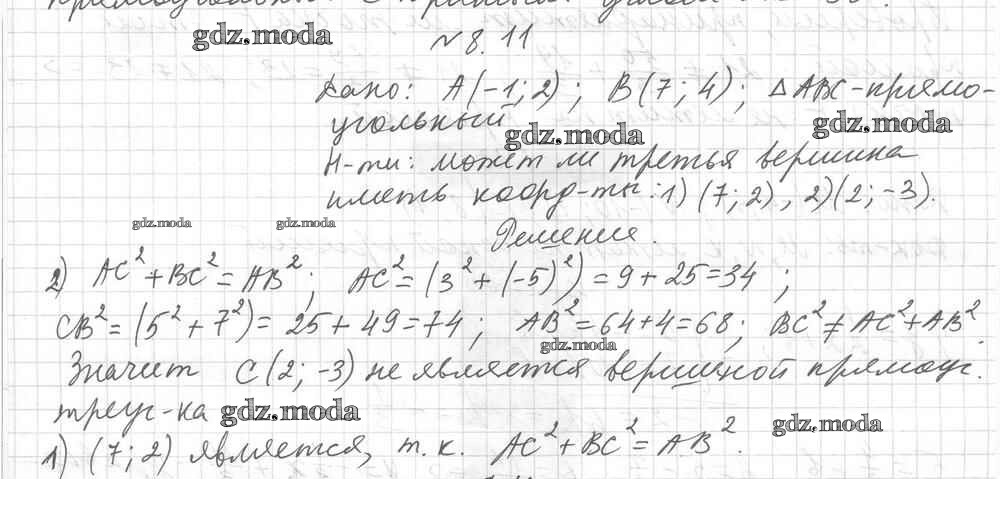 gdz.moda
№ 8.11
Дано: A(-1; 2); B(7; 4); △ABC - прямо-
угольный
gdz.moda gdz.moda
Н-ти: может ли третья вершина
иметь коорд-ты: 1) (7; 2), 2) (2; -3).
gdz.moda gdz.moda
Решение.
2) AC² + BC² = AB²; AC² = (3² + (-5)²) = 9 + 25 = 34;
CB² = (5² + 7²) = 25 + 49 = 74; AB² = 64 + 4 = 68; BC² ≠ AC² + AB².
gdz.moda
Значит C(2; -3) не является вершиной прямоуг.
треуг-ка gdz.moda
gdz.moda
1) (7; 2) является, т.к. AC² + BC² = AB².